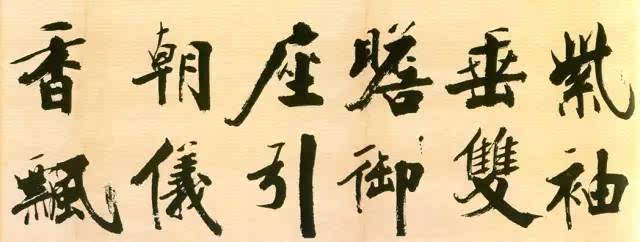 紫袖
垂雙
瞻御
座引
朝儀
香飄